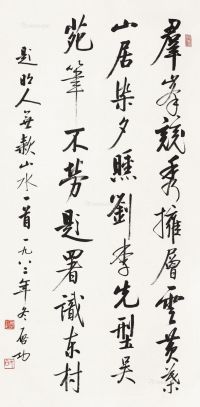 群峯競秀擁層雲黄葉
山居柴夕曛劉李先型吴
苑筆不勞題署識东村
题明人無款山水一首一九八三年冬启功